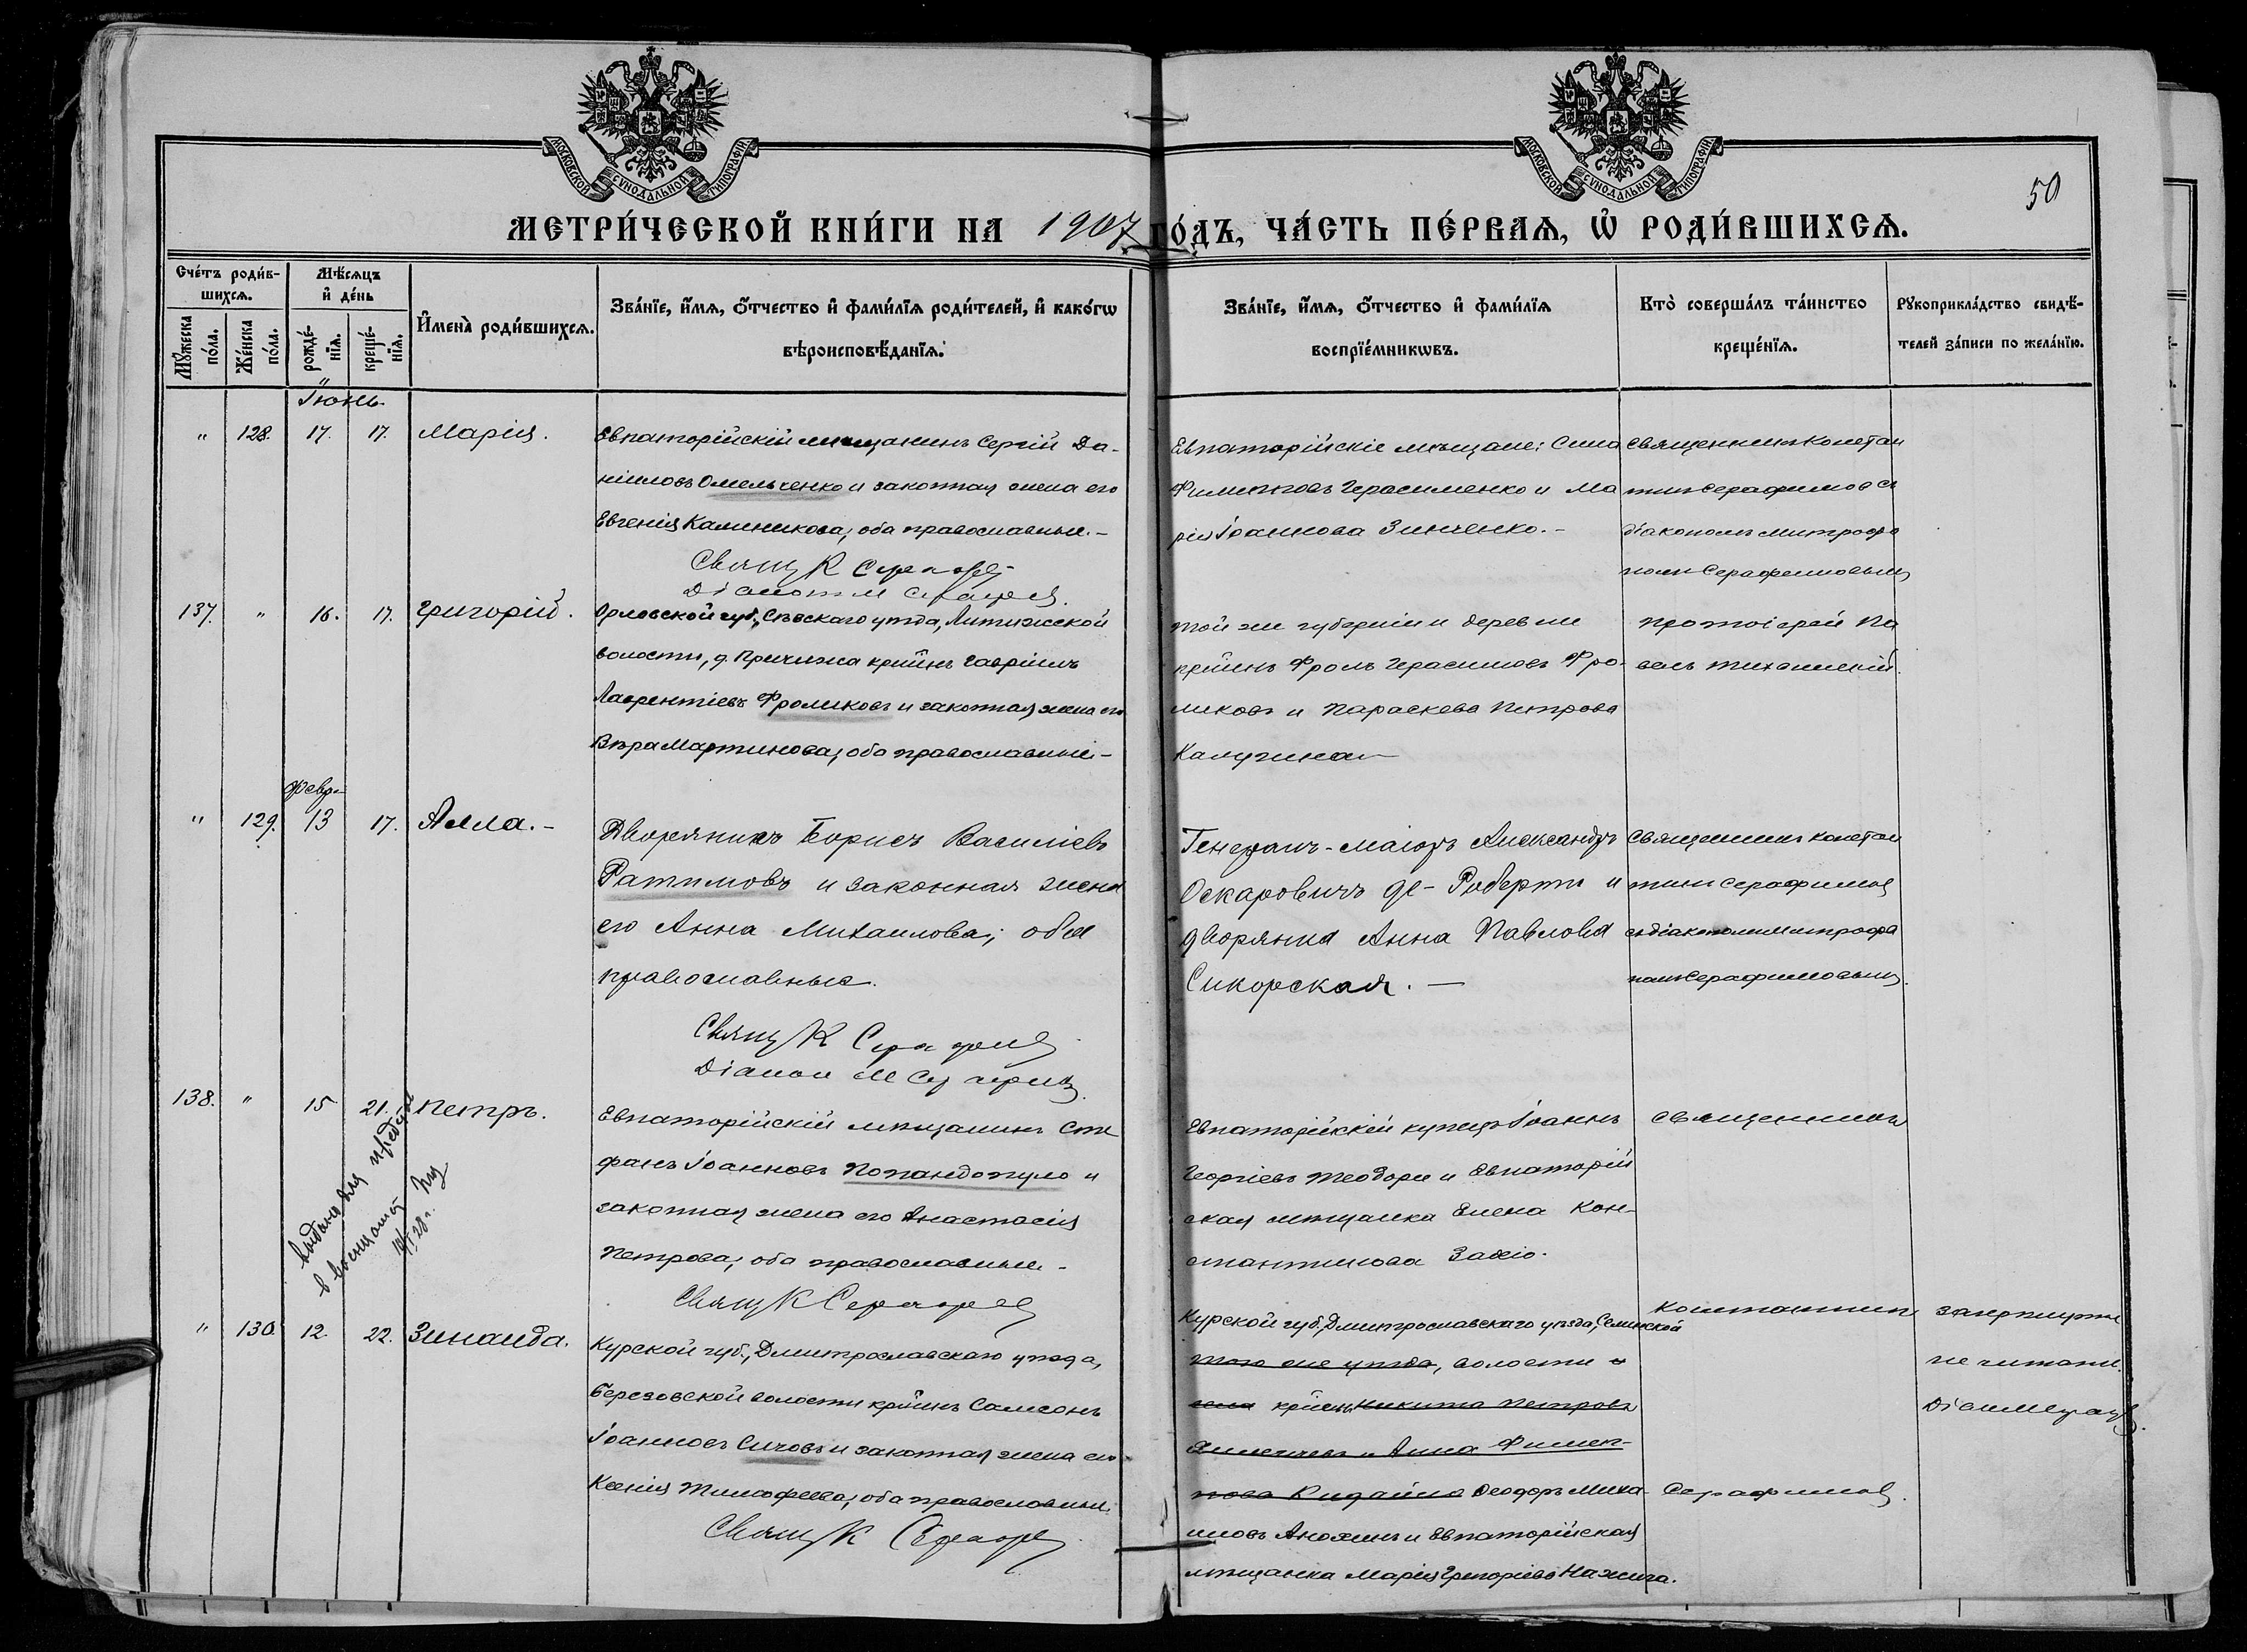 МОСКОВСКОЙ СѴНОДАЛЬНОЙ ТИПОГРАФІИ
МОСКОВСКОЙ СѴНОДАЛЬНОЙ ТИПОГРАФІИ
50
МЕТРИ́ЧЕСКОЙ КНИ́ГИ НА 1907 ГО́ДЪ, ЧА́СТЬ ПЕ́РВАѦ, Ѡ҆ РОДИ́ВШИХСѦ.
Сче́тъ роди́в-
шихсѧ.
Мꙋ́жеска по́ла.
Же́нска по́ла.
Мѣ́сѧцъ
и҆ де́нь
рожде́-
нїѧ.
креще́-
нїѧ.
И҆мена̀ роди́вшихсѧ.
Зва́нїе, и҆́мѧ, ѻ҆́тчество и҆ фами́лїѧ роди́телей, и҆ како́гѡ
вѣроисповѣ́данїѧ.
Зва́нїе, и҆́мѧ, ѻ҆́тчество и҆ фами́лїѧ
воспрїе́мникѡвъ.
Кто̀ соверша́лъ та́инство
креще́нїѧ.
Рꙋкоприкла́дство свидѣ́-
телей за́писи по жела́нїю.
Іюнь
" 128. 17. 17. Марія.
Евпаторійскій мѣщанинъ Сергій Да-
ніиловъ Омельченко и законная жена его
Евгенія Калиникова; оба православные.-
Свящ К Серафи
Діаконъ М Серафи
Евпаторійскіе мѣщане: Сила
Филиповъ Герасименко и Ма
рія Іоаннова Зинченко.-
Священникъ Констан
тинъ Серафимовъ съ
діакономъ Митрофа
номъ Серафимовымъ
137. " 16. 17. Григорій.
Орловской губ., Сѣвскаго уѣзда, Литижской
волости, д. Пречижа кр-инъ Гавріилъ
Лаврентіевъ Фроликовъ и законная жена его
Вѣра Мартинова; оба православные-
той же губерніи и деревни
кр-инъ Фролъ Герасимовъ Фро-
ликовъ и Параскева Петрова
Калугина
Протоіерей Па
велъ Тиховскій.
Февр-
" 129. 13 17. Алла.-
Дворянинъ Борисъ Василіевъ
Ратимовъ и законная жена
его Анна Михаилова; оба
православные.
Свящ К Серафи
Діакон М Серафи
Генералъ-маіоръ Александръ
Оскаровичъ де-Роберти и
дворянка Анна Павлова
Сикорская.-
Священникъ Констан
тинъ Серафимов
съ діакономъ Митрофа
номъ Серафимовымъ.
138. " 15 21. Петръ.
выдана для предъяв
в военкомат
Евпаторійскій мѣщанинъ Сте
фанъ Іоанновъ Попандопуло и
законная жена его Анастасія
Петрова; оба православные-
Свящ К Серафи
Евпаторійскій купецъ Іоаннъ
Георгіевъ Теодори и Евпаторій
ская мѣщанка Елена Кон-
стантинова Захіо.
Священникъ
" 130. 12. 22. Зинаида.
Курской губ., Дмитрославскаго уѣзда,
Березовской волости кр-инъ Самсонъ
Іоанновъ Сичовъ и законная жена его
Ксенія Тимофеева; оба православные.
Свящ К Серафи
Курской губ., Дмитрославскаго уѣзда, Селинской
того же уѣзда, волости и
села кр-инъ Никита Петровъ
и Анна Филип-
пова Кидайло Ѳеодоръ Миха-
иловъ Анохинъ и Евпаторійская
мѣщанка Марія Григоріева Нахига.
Константинъ
Серафимов.
Зачеркнутое
не читать.